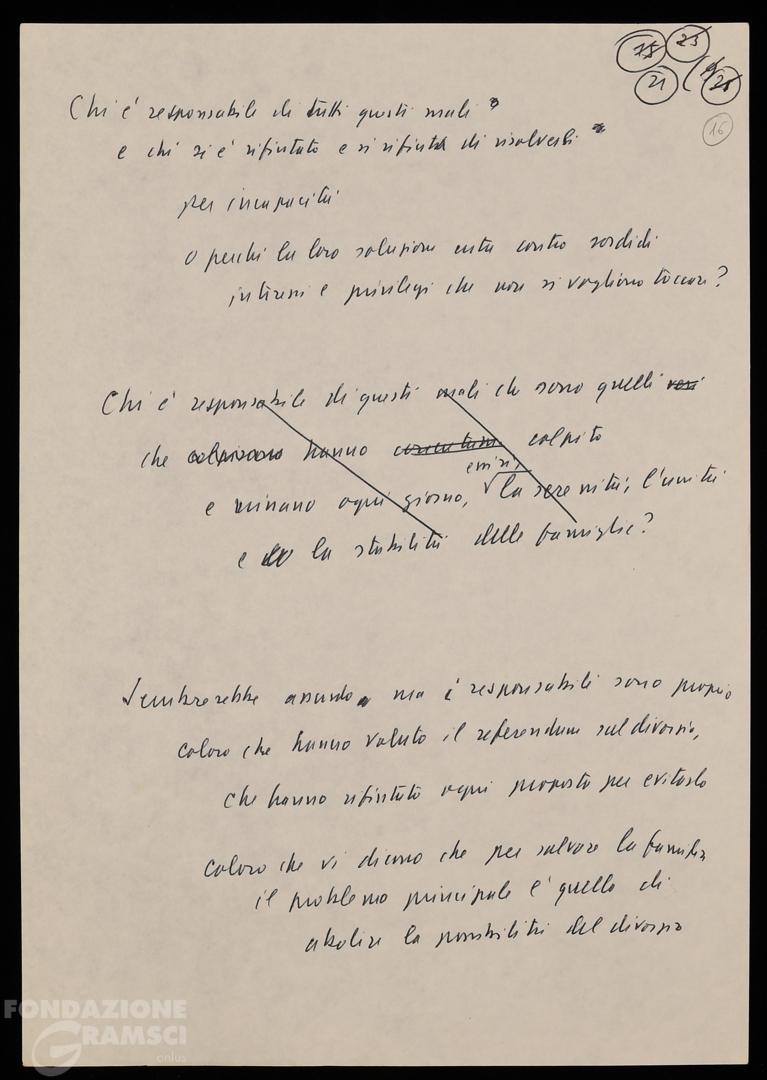 75 23
21 26
16
Chi è responsabile di tutti questi mali?
e chi si è rifiutato e si rifiuta di risolverli
per incapacità
o perché la loro soluzione urta contro sordidi
interessi e privilegi che non si vogliono toccare?
Chi è responsabile di questi mali che sono quelli veri
che colpiscono hanno colpito
e minano ogni giorno, la serenità, l'unità
e la stabilità delle famiglie?
Sembrerebbe assurdo, ma i responsabili sono proprio
coloro che hanno voluto il referendum sul divorzio,
che hanno rifiutato ogni proposta per evitarlo
coloro che vi dicono che per salvare la famiglia
il problema principale è quello di
abolire la possibilità del divorzio
FONDAZIONE
GRAMSCI
onlus